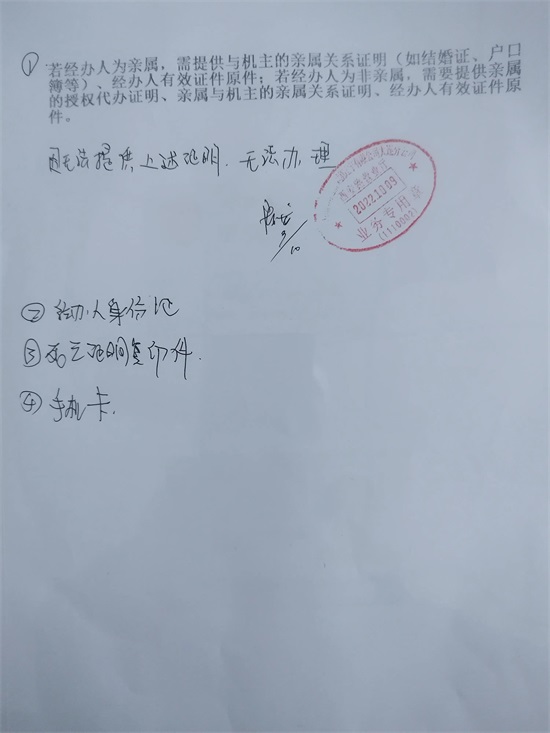 ① 若经办人为亲属，需提供与机主的亲属关系证明（如结婚证、户口
簿等）、经办人有效证件原件；若经办人为非亲属，需要提供亲属
的授权代办证明、亲属与机主的亲属关系证明、经办人有效证件原
件。
因无法提供上述证明.无法办理
2022.10.09
业务专用章
(1110002)
9/10
② 经办人身份证
③ 死亡证明复印件.
④ 手机卡.